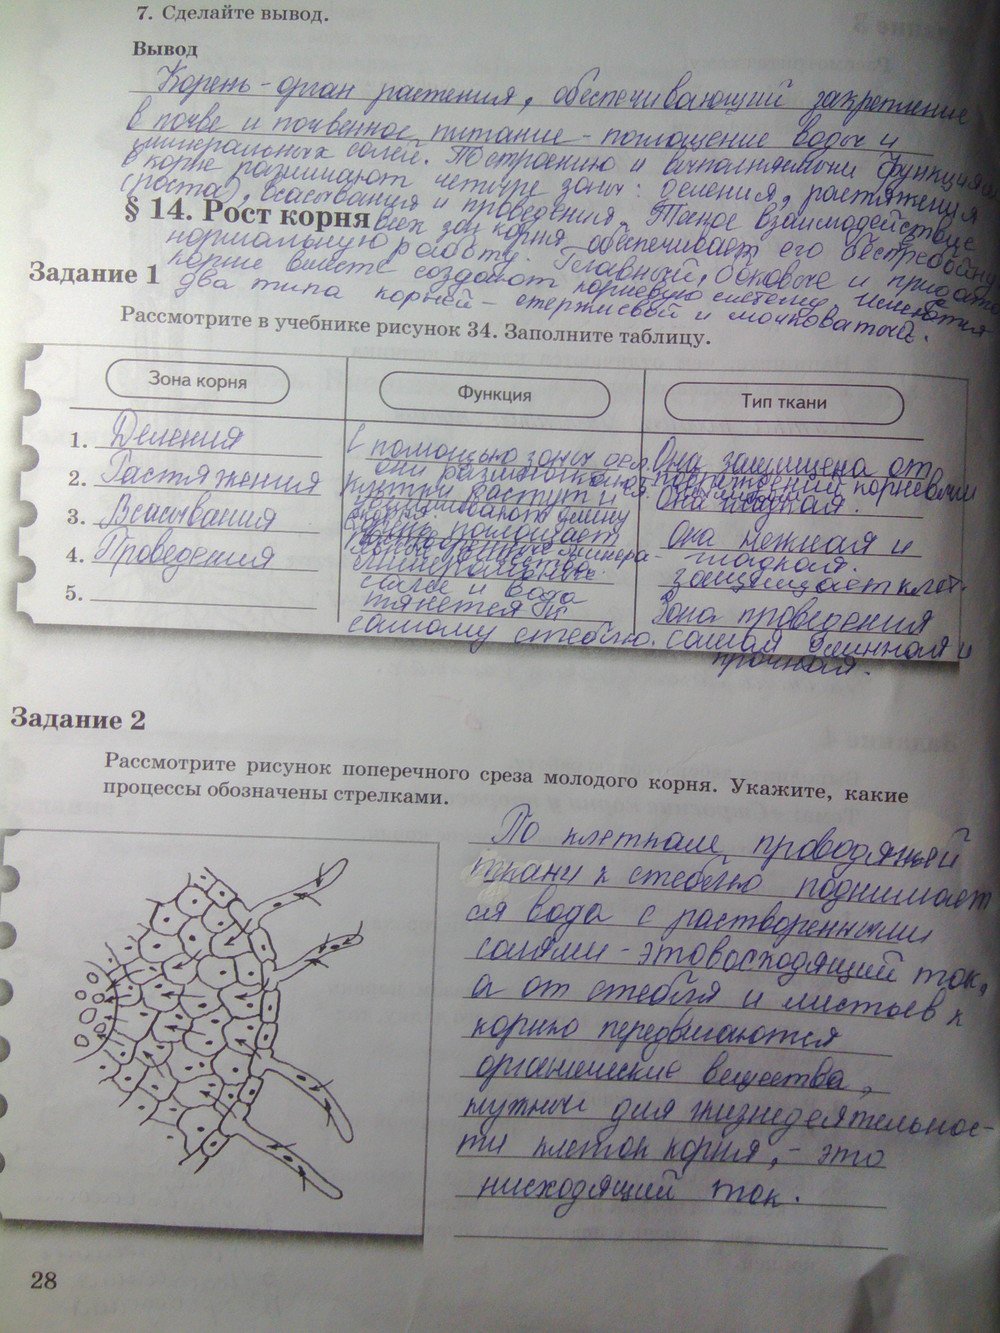 7. Сделайте вывод.
Вывод
Корень - орган растения, обеспечивающий закрепление
в почве и почвенное питание - поглощение воды и
минеральных солей. По строению и выполняемым функциям
в корне различают четыре зоны: деления, растяжения
(роста), всасывания и проведения. Тесное взаимодействие
§ 14. Рост корня
всех зон корня обеспечивает его бесперебойную
нормальную работу. Главный, боковые и придаточные
Задание 1
корни вместе создают корневую систему. Имеются
два типа корней - стержневой и мочковатый.
Рассмотрите в учебнике рисунок 34. Заполните таблицу.
Зона корня
Функция
Тип ткани
1. Деления
2. Растяжения
3. Всасывания
4. Проведения
5.
С помощью зоны дел.
они размножаются.
клетки растут и
длину
поглощает
минера-
солёе и вода
тянется к
самому стеблю.
Она защищена от
повреждений корневым
Она гладкая.
Она нежная и
гладкая.
защищает клет.
Зона проведения
самая длинная и
прочная.
Задание 2
Рассмотрите рисунок поперечного среза молодого корня. Укажите, какие
процессы обозначены стрелками.
По клеткам проводящей
ткани к стеблю поднимает
ся вода с растворенными
солями - это восходящий ток,
а от стебля и листьев к
корню передвигаются
органические вещества,
нужный для жизнедеятельнос-
ти клеток корня, - это
нисходящий ток.
28